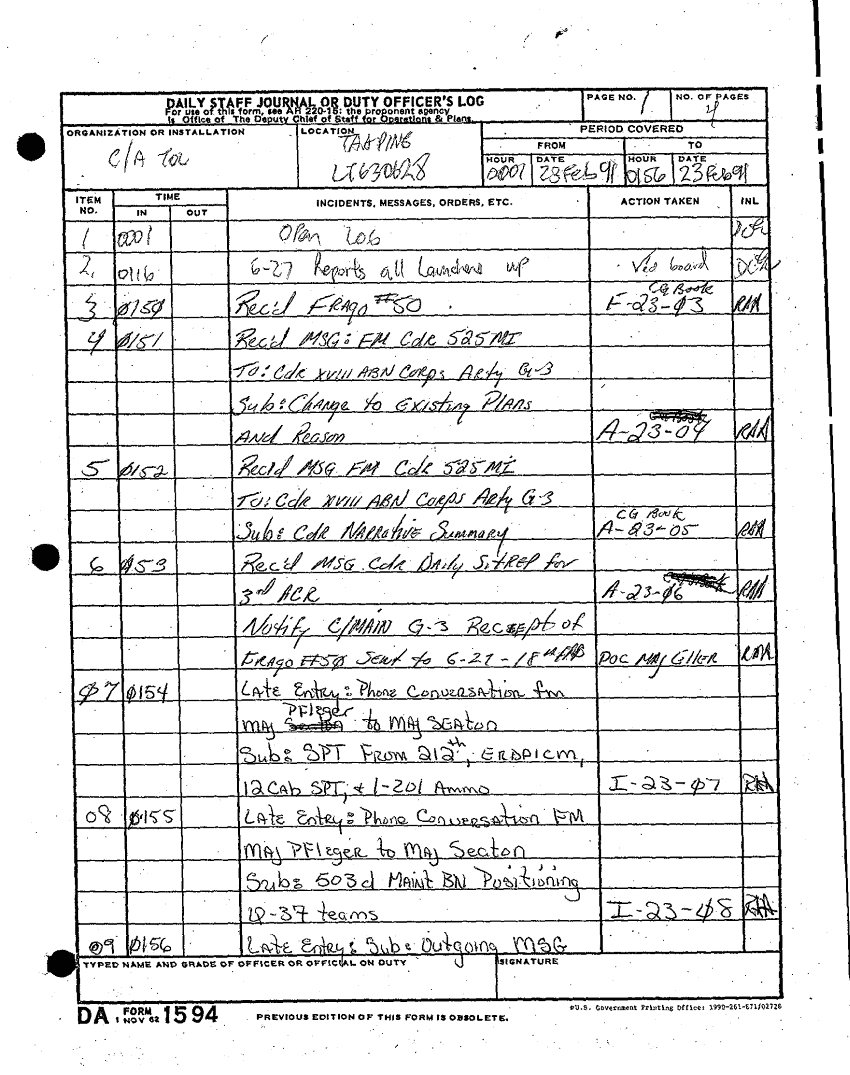 DAILY STAFF JOURNAL OR DUTY OFFICER'S LOG
For use of this form, see AR 220-15; the proponent agency
is Office of The Deputy Chief of Staff for Operations & Plans.
PAGE NO. 1
NO. OF PAGES 4
ORGANIZATION OR INSTALLATION
C/A TOC
LOCATION
TAPLINE
LT630628
PERIOD COVERED
FROM TO
HOUR DATE HOUR DATE
0001 23 Feb 91 0156 23 Feb 91
ITEM NO. TIME INCIDENTS, MESSAGES, ORDERS, ETC. ACTION TAKEN INL
IN OUT
1 0001 Open Log
2. 0116 6-27 Reports all Launchers up Via board
CG Book
3 0150 Rec'd FRAGO #50 F-23-03 RAA
4 0151 Rec'd MSG: FM Cdr 525 MI
To: Cdr XVIII ABN Corps Arty G-3
Sub: Change to Existing Plans
And Reason A-23-04 RAA
5 0152 Rec'd MSG FM Cdr 525 MI
To: Cdr XVIII ABN Corps Arty G-3
CG Book
Sub: Cdr NARRATIVE Summary A-23-05 RAA
6 0153 Rec'd MSG Cdr Daily SitREP for
3rd ACR A-23-06 RAA
Notify C/MAIN G-3 Receept of
FRAGO #50 Sent to 6-27 - 18th POC MAJ RAA
07 0154 LATE Entry: Phone Conversation fm
PFleger
MAJ to MAJ SEATON
Sub: SPT From 212th, ERDPICM,
12 CAB SPT, & 1-201 Ammo I-23-07 RAA
08 0155 LATE Entry: Phone Conversation FM
MAJ PFleger to MAJ Seaton
Sub: 503d MAINT BN Positioning
Q-37 teams I-23-08 RAA
09 0156 LATE Entry: Sub: Outgoing MSG
TYPED NAME AND GRADE OF OFFICER OR OFFICIAL ON DUTY SIGNATURE
DA FORM 1 NOV 62 1594 PREVIOUS EDITION OF THIS FORM IS OBSOLETE.
U.S. Government Printing Office: 1990-261-871/02726